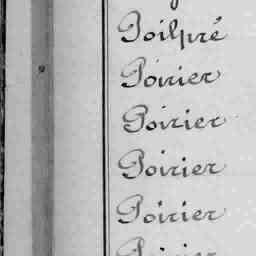 Poilpré
Poirier
Poirier
Poirier
Poirier
Poirier